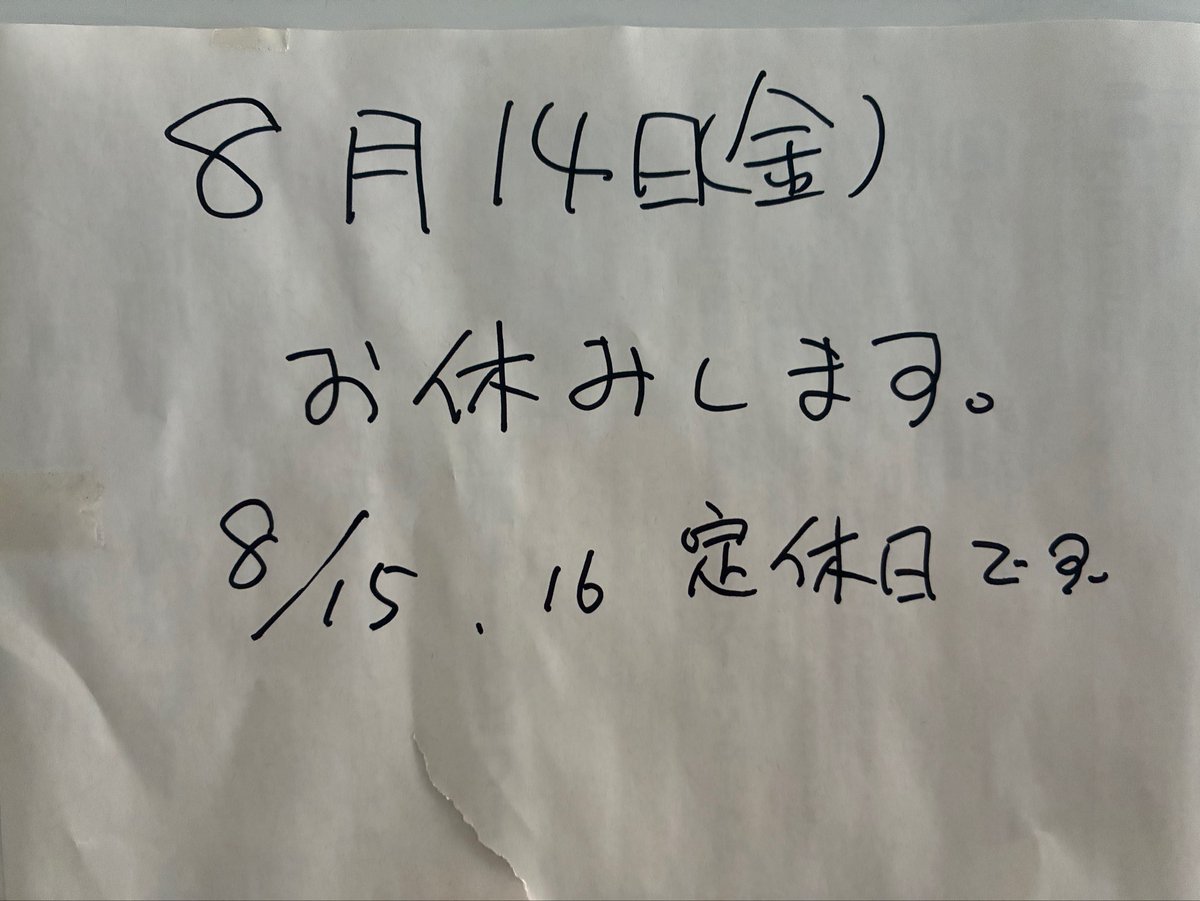 8月14日(金)
お休みします。
8/15.16 定休日です。